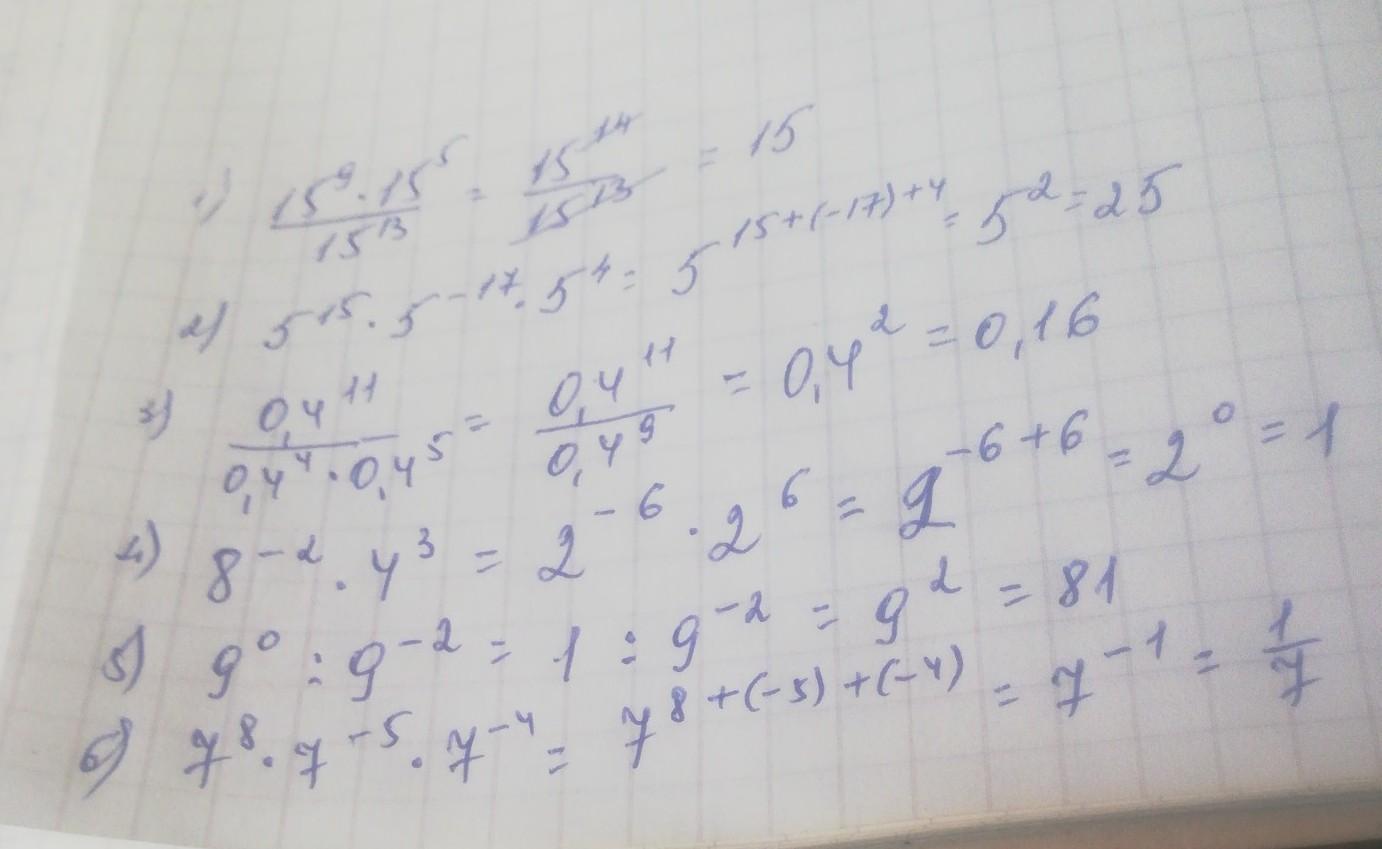 1) 15⁹ · 15⁵ / 15¹³ = 15¹⁴ / 15¹³ = 15
2) 5¹⁵ · 5⁻¹⁷ · 5⁴ = 5¹⁵⁺⁽⁻¹⁷⁾⁺⁴ = 5² = 25
3) 0,4¹¹ / 0,4⁴ · 0,4⁵ = 0,4¹¹ / 0,4⁹ = 0,4² = 0,16
4) 8⁻² · 4³ = 2⁻⁶ · 2⁶ = 2⁻⁶⁺⁶ = 2⁰ = 1
5) 9⁰ : 9⁻² = 1 : 9⁻² = 9² = 81
6) 7⁸ · 7⁻⁵ · 7⁻⁴ = 7⁸⁺⁽⁻⁵⁾⁺⁽⁻⁴⁾ = 7⁻¹ = 1/7